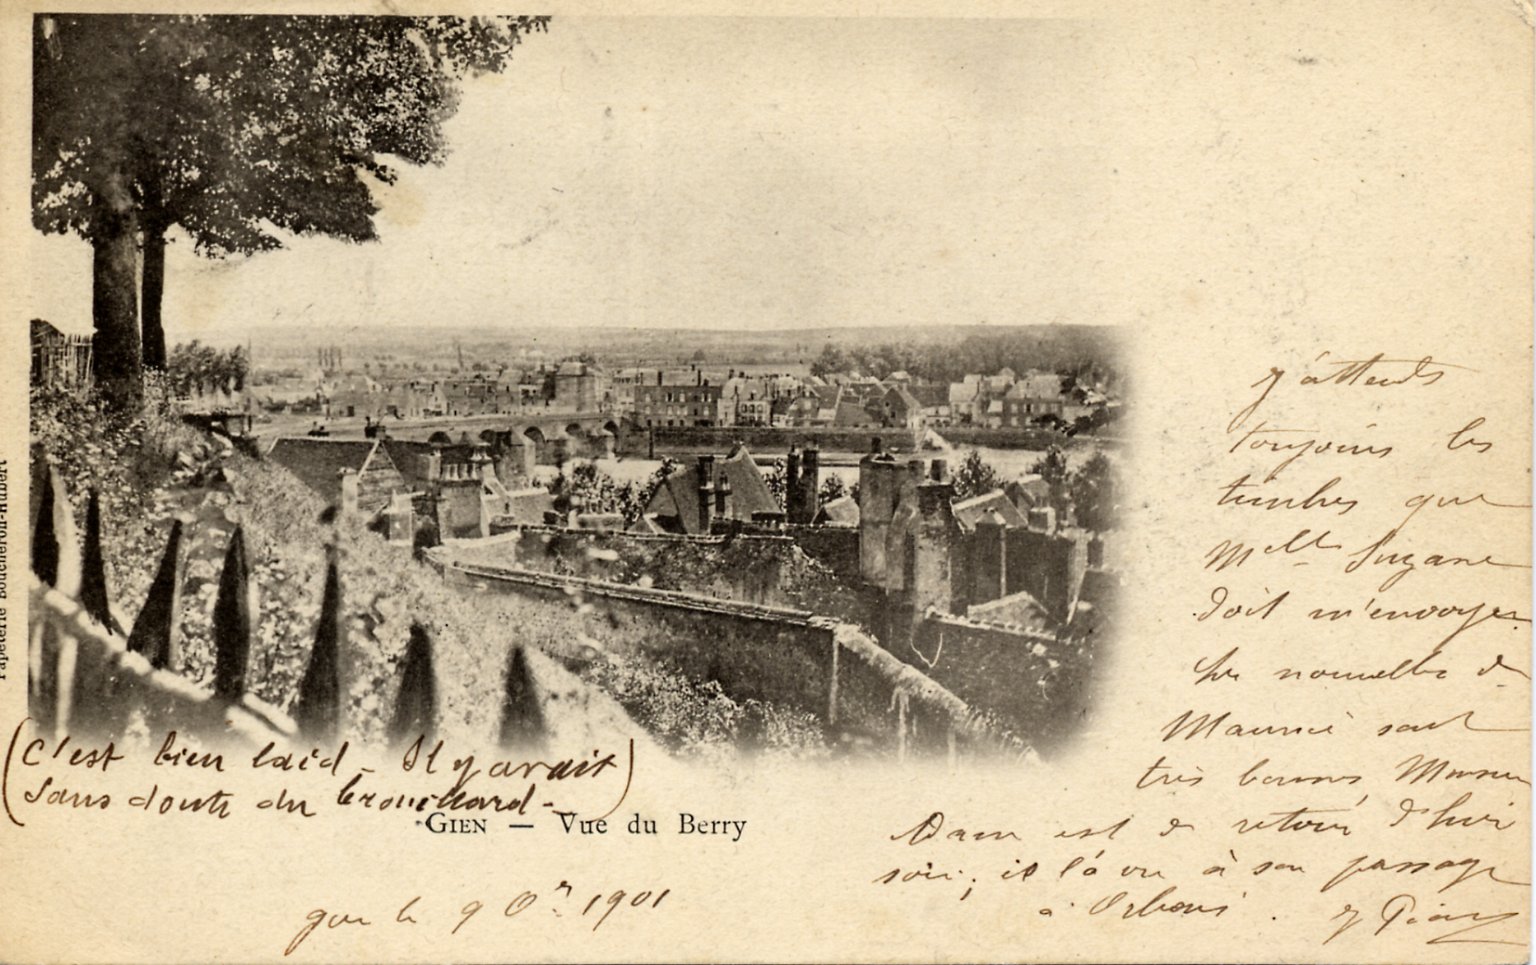 Papeterie Boucheron-Hubert
(C'est bien laid - Il y avait
sans doute du brouillard -)
GIEN — Vue du Berry
le 9 1901
J'attends
toujours les
timbres que
Melle Suzane
doit m'envoyer.
les nouvelles de
Maurice sont
très bonnes, Monsieur
Dam est de retour d'hier
soir; il l'a vu à son passage
à Orléans.